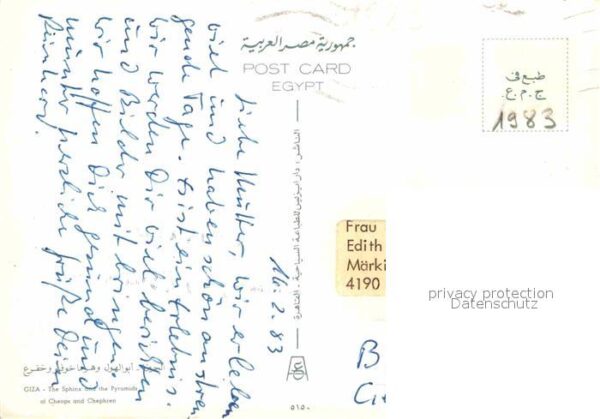 جمهورية مصر العربية
POST CARD
EGYPT
طبع في
ج.م.ع.
1983
16.2.83
Liebe Mutter, wir erleben
viel und haben schon anstren
gende Tage. Es ist ein Erlebnis.
wir werden Dir viel berichten
und Bilder mitbringen
wir hoffen Dich gesund und
munter herzliche Grüße Dein
Reinhard.
الناشر: دار
للطباعة
السياحية - القاهرة
Frau
Edith
Märki
4190
privacy protection
Datenschutz
B
أبو الهول
خوفو وخفرع
GIZA - The Sphinx and the Pyramids
of Cheops and Chephren
٥١٥٠